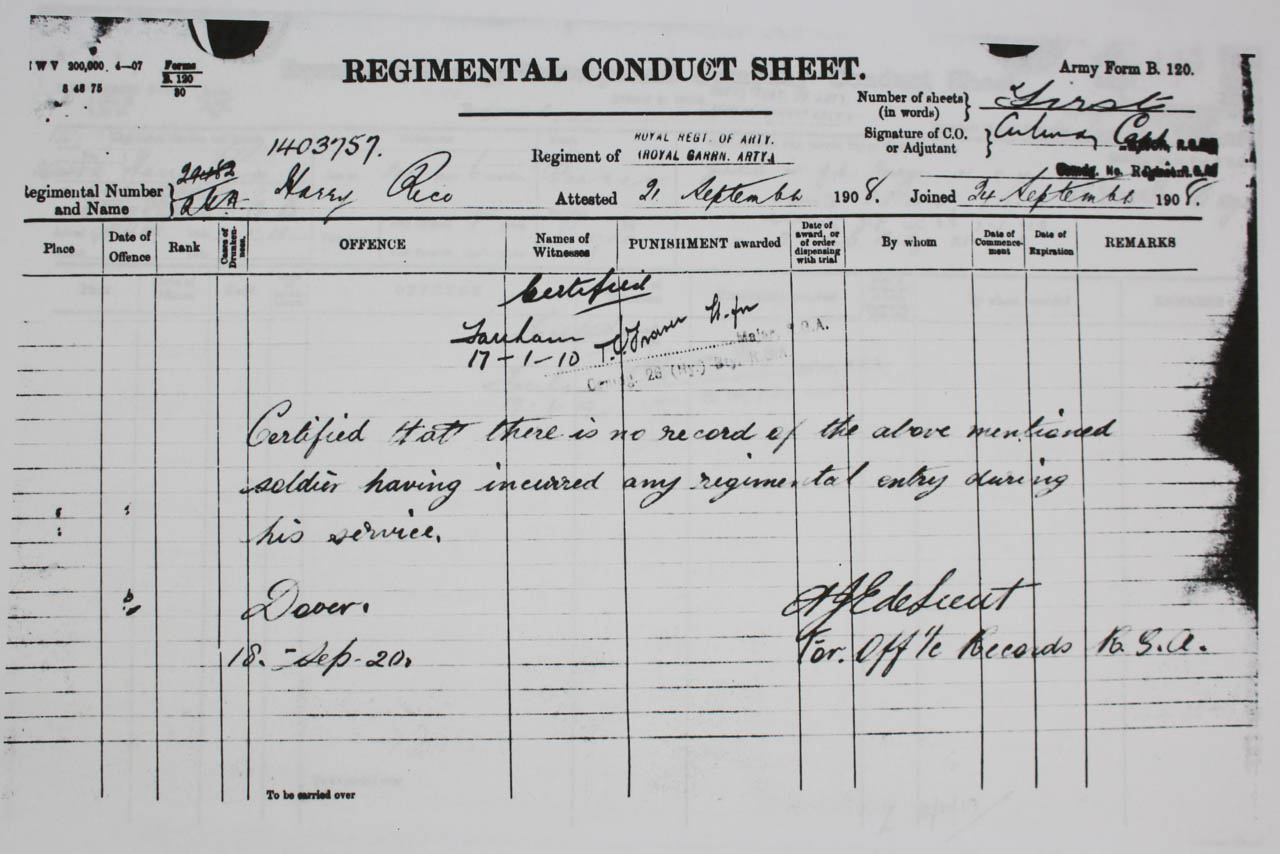 IWV 200,000. 4—07
8 48 75
Forms
B. 120
30
REGIMENTAL CONDUCT SHEET.
Army Form B. 120.
Number of sheets (in words) } First
Signature of C.O. or Adjutant } Capt. R.G.A.
1403757.
Regimental Number and Name } 29482 Harry Rico
Regiment of ROYAL REGT. OF ARTY. (ROYAL GARRN. ARTY.)
Attested 21 September 1908. Joined 24 September 1908.
Place
Date of Offence
Rank
Cases of Drunkenness.
OFFENCE
Names of Witnesses
PUNISHMENT awarded
Date of award, or of order dispensing with trial
By whom
Date of Commencement
Date of Expiration
REMARKS
Certified
Fareham T. Fraser Lt. for
17-1-10 Major, R.G.A.
Comdg. 26 (Hy.) Bty. R.G.A.
Certified that there is no record of the above mentioned
soldier having incurred any regimental entry during
his service.
Dover.
18.-Sep-20.
For. Off i/c Records R.G.A.
To be carried over